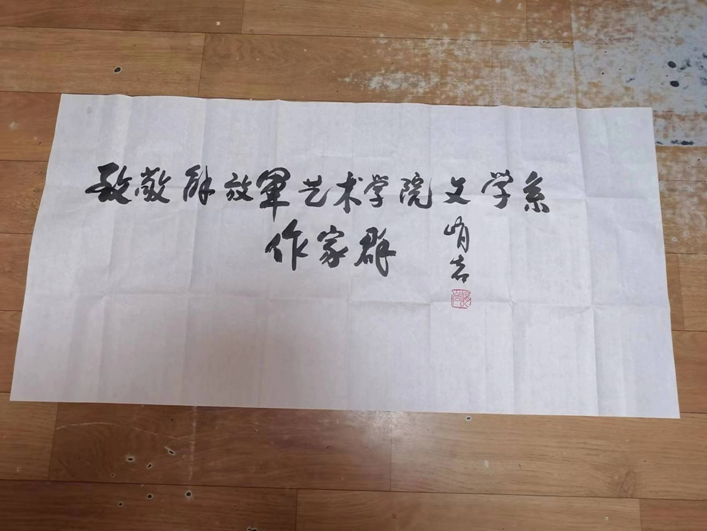 致敬解放军艺术学院文学系
作家群